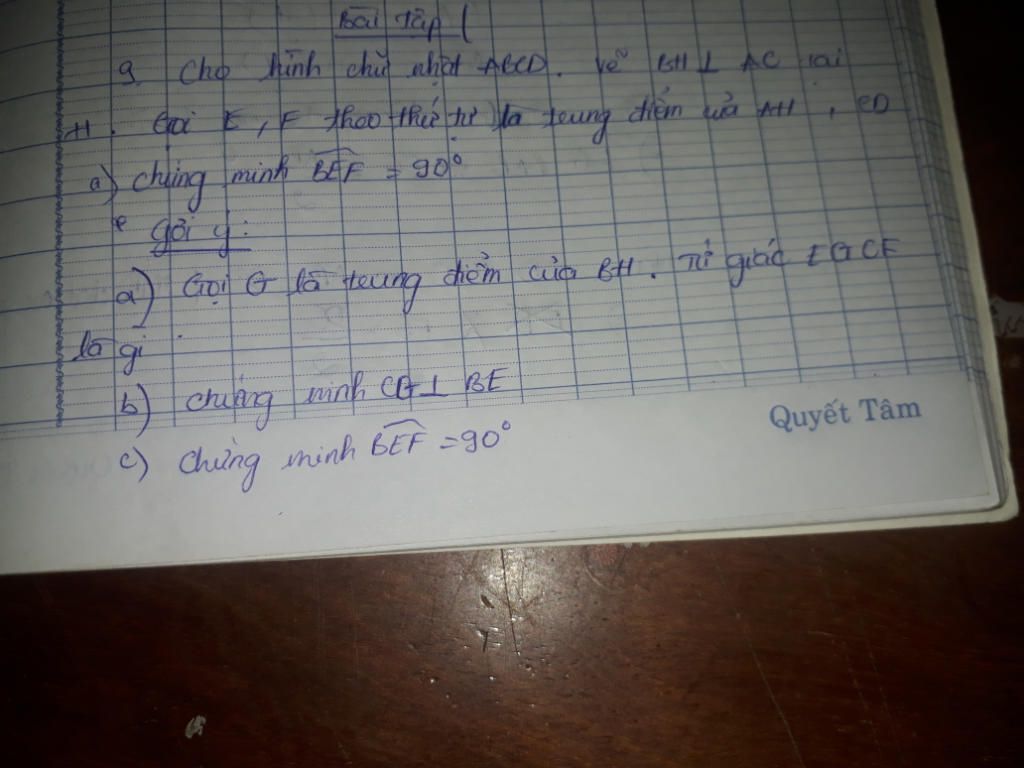 Bài tập 1
9 Cho hình chữ nhật ABCD. vẽ BH⊥ AC tại
H. Gọi E, F theo thứ tự là trung điểm của AH, CD
a) chứng minh BEF = 90°
gởi ý:
a) Gọi G là trung điểm của BH. Tứ giác EGCF
là gì
b) chứng minh CG⊥ BE
c) chứng minh BEF = 90°
Quyết Tâm